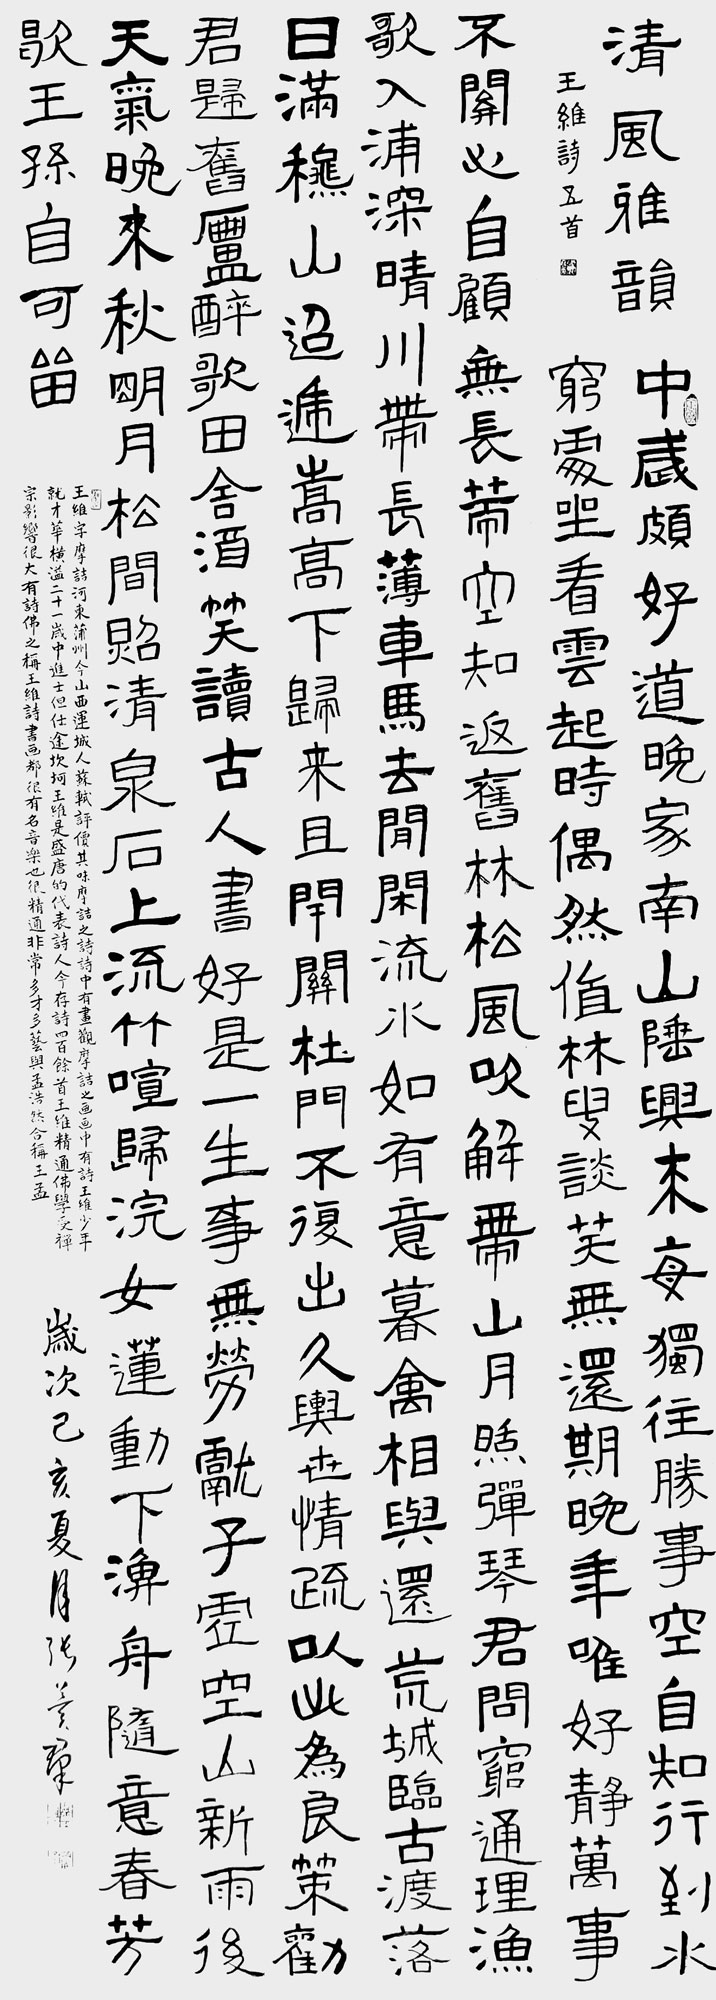 清風雅韻
王維詩五首
中歲頗好道晚家南山陲興來每獨往勝事空自知行到水
窮處坐看雲起時偶然值林叟談笑無還期晚年唯好靜萬事
不關心自顧無長策空知返舊林松風吹解帶山月照彈琴君問窮通理漁
歌入浦深晴川帶長薄車馬去閒閑流水如有意暮禽相與還荒城臨古渡落
日滿秋山迢遞嵩高下歸来且閉關杜門不復出久與世情疏以此為良策勸
君歸舊廬醉歌田舍酒笑讀古人書好是一生事無勞獻子虛空山新雨後
天氣晚來秋明月松間照清泉石上流竹喧歸浣女蓮動下漁舟隨意春芳
歇王孫自可留
王維字摩詰河東蒲州今山西運城人蘇軾評價其味摩詰之詩詩中有畫觀摩詰之画画中有詩王維少年
就才華橫溢二十一歲中進士但仕途坎坷王維是盛唐的代表詩人今存詩四百餘首王維精通佛學受禪
宗影響很大有詩佛之稱王維詩書画都很有名音樂也很精通非常多才多藝與孟浩然合稱王孟
歲次己亥夏月张